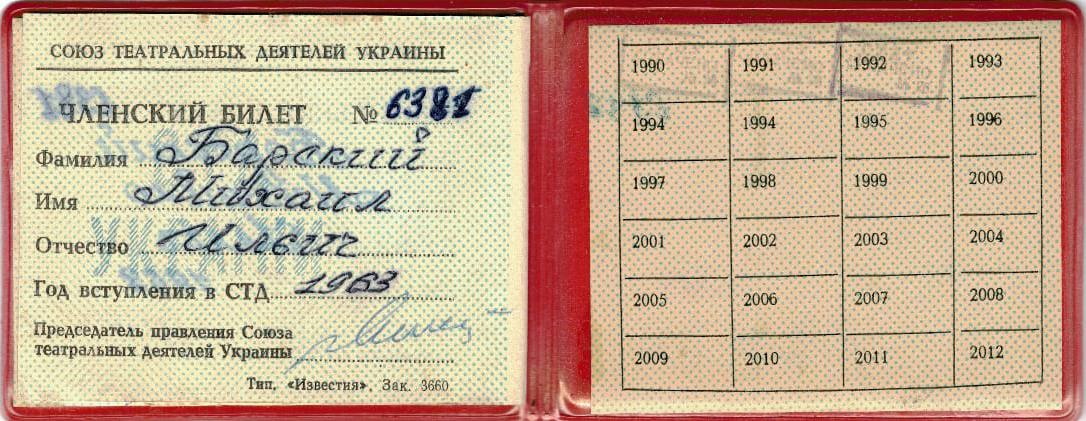 СОЮЗ ТЕАТРАЛЬНЫХ ДЕЯТЕЛЕЙ УКРАИНЫ
ЧЛЕНСКИЙ БИЛЕТ № 6381
Фамилия Барский
Имя Михаил
Отчество Ильич
Год вступления в СТД 1963
Председатель правления Союза
театральных деятелей Украины
Тип. «Известия». Зак. 3660
1990 1991 1992 1993
1994 1994 1995 1996
1997 1998 1999 2000
2001 2002 2003 2004
2005 2006 2007 2008
2009 2010 2011 2012